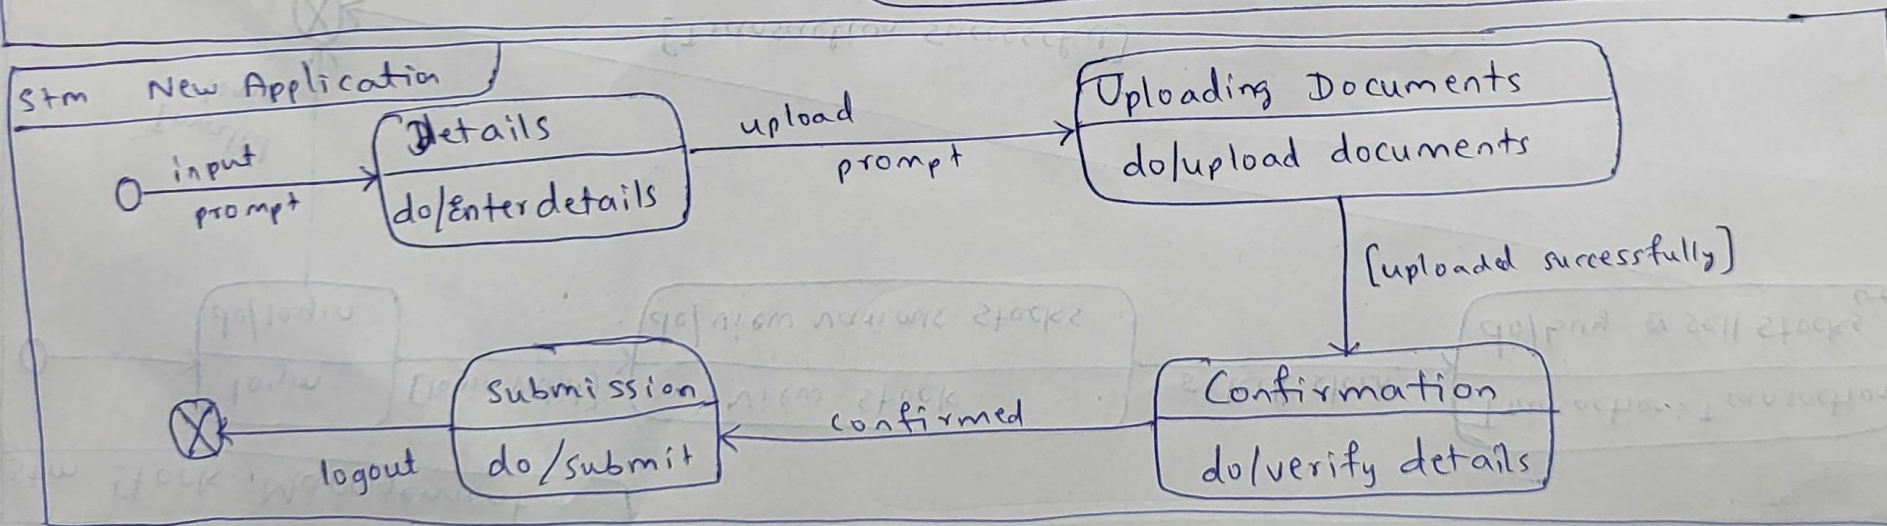 stm New Application
Details
do/Enter details
input
prompt
upload
prompt
Uploading Documents
do/upload documents
[uploaded successfully]
Confirmation
do/verify details
confirmed
submission
do/submit
logout